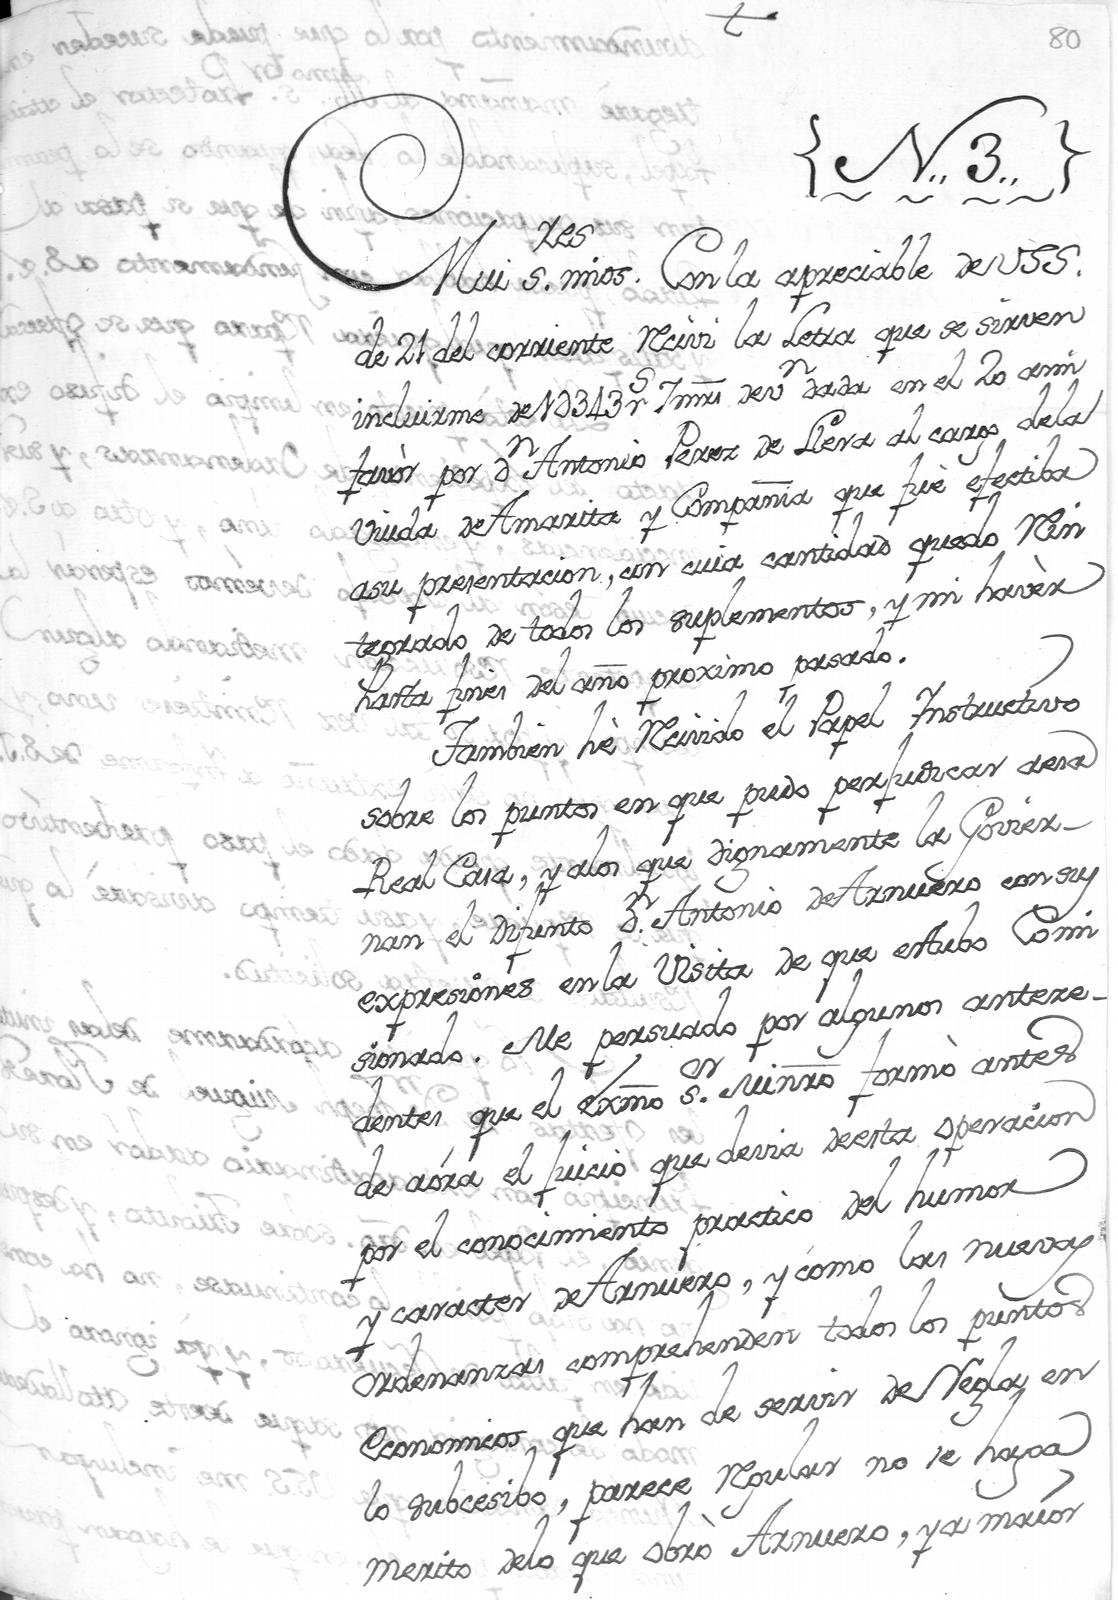 t
80
{N.. 3..}
Mui s.res mios. Con la apreciable de VSS.
de 21 del corriente Reciví la Letra que se sirven
incluirme de 343 r.s de v.n dada en el 20 a mi
favòr por d.n Antonio Perez de Llera al cargo dela
Viuda de Amarita y Compañia que fuè efectiba
asu presentacion, con cuia cantidad quedo Rein
tegrado de todos los suplementos, y mi havèr
hasta fines del año proximo pasado.
Tambien hè Recivido el Papel Instructivo
sobre los puntos en que pudo perjudicar aesa
Real Casa, y alos que dignamente la Govier-
nan el difunto d.n Antonio de Arnuero con sus
expresiones en la Visita de que estubo Comi
sionado. Me persuado por algunos antece-
dentes que el Exmo s.or Minro formò antes
de aóra el juicio que devia deesta operacion
por el conocimiento practico del humor
y caracter de Arnuero, y cómo las nuevas
Ordenanzas comprehenden todos los puntos
Economicos que han de servir de Regla en
lo subcesibo, parece Regular no se haga
merito delo que obrò Arnuero, y a maiór